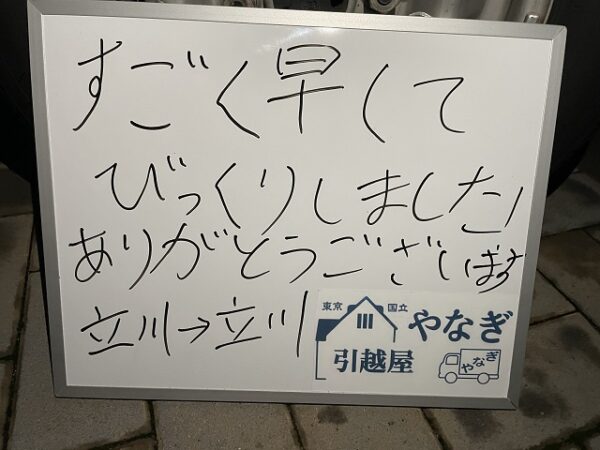 すごく早くて
びっくりしました!
ありがとうございます
立川→立川
東京 国立
引越屋
やなぎ
やなぎ